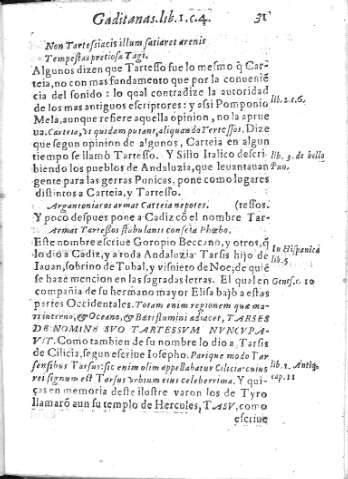 Gaditanas. lib. 1. c. 4. 31
Non Tartessiacis illum satiaret arenis
Tempestas pretiosa Tagi.
Algunos dizen que Tartesso fue lo mesmo q̃ Car-
teia, no con mas fundamento que por la conuenie
cia del sonido: lo qual contradize la autoridad
de los mas antiguos escriptores: y assi Pomponio
Mela, aunque refiere aquella opinion, no la aprue
ua. Carteia, vt quidam putant, aliquando Tertessos. Dize
que segun opinion de algunos, Carteia en algun
tiempo se llamò Tartesso. Y Silio Italico descri-
biendo los pueblos de Andaluzia, que leuantauan
gente para las gerras Punicas, pone como lugares
distintos a Carteia, y Tartesso.
Argantoniacos armat Carteia nepotes. (tessos.
Y poco despues pone a Cadiz cõ el nombre Tar-
Armat Tartessos stabulanti conscia Phœbo.
Este nombre escriue Goropio Beccano, y otros, q̃
lo dio a Cadiz, y a toda Andaluzia Tarsis hijo de
Iauan, sobrino de Tubal, y visnieto de Noe; de quiẽ
se haze mencion en las sagradas letras. El qual en
compañia de su hermano mayor Elisa baxò a estas
partes Occidentales. Totam enim regionem quæ ma-
ri interno, & Oceano, & Bæti flumini adiacet, TARSES
DE NOMINE SVO TARTESSVM NVNCVPA-
VIT. Como tambien de su nombre lo dio a Tarsis
de Cilicia, segun escriue Iosepho. Parique modo Tar
sensibus Tarsus: sic enim olim appellabatur Cilicia: cuius
rei signum est Tarsus vrbium eius celeberrima. Y qui-
ças en memoria deste ilustre varon los de Tyro
llamarõ aun su templo de Hercules, TASV, como
escriue
lib. 2. c. 6.
lib. 3. de bello
Pun.
In Hispanica
lib. 5.
Genes. c. 10
lib. 1. Antiq.
cap. 11